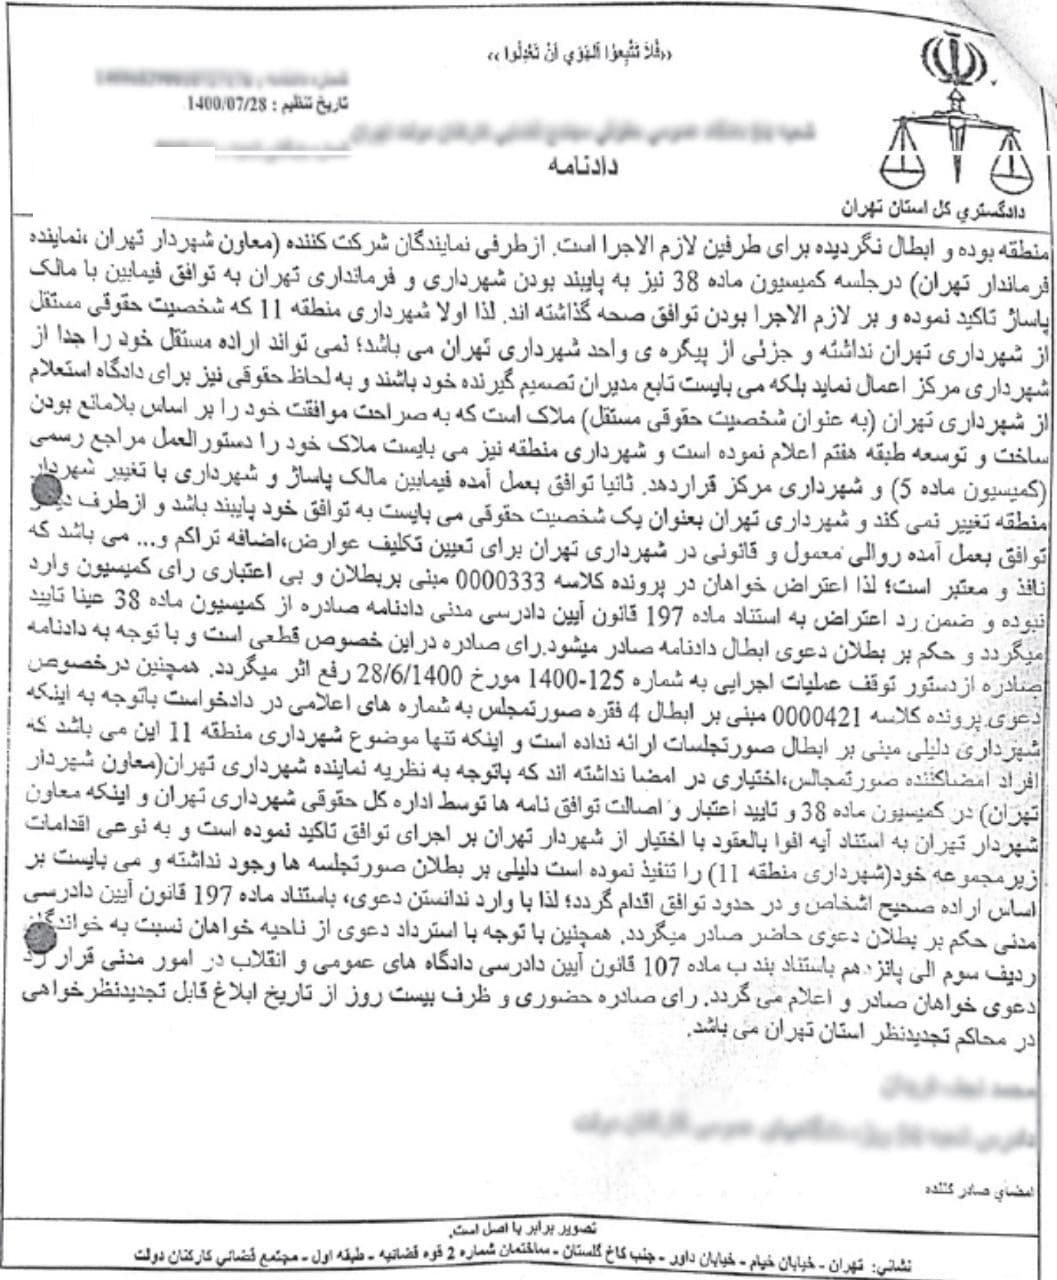 «فَلَا تَتَّبِعُوا الْهَوَي أَنْ تَعْدِلُوا»
تاریخ تنظیم : 1400/07/28
دادنامه
دادگستري کل استان تهران
منطقه بوده و ابطال نگردیده برای طرفین لازم الاجرا است. ازطرفی نمایندگان شرکت کننده (معاون شهردار تهران ،نماینده
فرماندار تهران) درجلسه کمیسیون ماده 38 نیز به پایبند بودن شهرداری و فرمانداری تهران به توافق فیمابین با مالک
پاساژ تاکید نموده و بر لازم الاجرا بودن توافق صحه گذاشته اند. لذا اولا شهرداری منطقه 11 که شخصیت حقوقی مستقل
از شهرداری تهران نداشته و جزئی از پیگره ی واحد شهرداری تهران می باشد؛ نمی تواند اراده مستقل خود را جدا از
شهرداری مرکز اعمال نماید بلکه می بایست تابع مدیران تصمیم گیرنده خود باشند و به لحاظ حقوقی نیز برای دادگاه استعلام
از شهرداری تهران (به عنوان شخصیت حقوقی مستقل) ملاک است که به صراحت موافقت خود را بر اساس بلامانع بودن
ساخت و توسعه طبقه هفتم اعلام نموده است و شهرداری منطقه نیز می بایست ملاک خود را دستورالعمل مراجع رسمی
(کمیسیون ماده 5) و شهرداری مرکز قراردهد. ثانیا توافق بعمل آمده فیمابین مالک پاساژ و شهرداری با تغییر شهردار
منطقه تغییر نمی کند و شهرداری تهران بعنوان یک شخصیت حقوقی می بایست به توافق خود پایبند باشد و ازطرف
توافق بعمل آمده روالی معمول و قانونی در شهرداری تهران برای تعیین تکلیف عوارض،اضافه تراکم و... می باشد که
نافذ و معتبر است؛ لذا اعتراض خواهان در پرونده کلاسه 0000333 مبنی بربطلان و بی اعتباری رای کمیسیون وارد
نبوده و ضمن رد اعتراض به استناد ماده 197 قانون آیین دادرسی مدنی دادنامه صادره از کمیسیون ماده 38 عینا تایید
میگردد و حکم بر بطلان دعوی ابطال دادنامه صادر میشود.رای صادره دراین خصوص قطعی است و با توجه به دادنامه
صادره ازدستور توقف عملیات اجرایی به شماره 125-1400 مورخ 28/6/1400 رفع اثر میگردد. همچنین درخصوص
دعوی پرونده کلاسه 0000421 مبنی بر ابطال 4 فقره صورتمجلس به شماره های اعلامی در دادخواست باتوجه به اینکه
شهرداری دلیلی مبنی بر ابطال صورتجلسات ارائه نداده است و اینکه تنها موضوع شهرداری منطقه 11 این می باشد که
افراد امضاکننده صورتمجالس،اختیاری در امضا نداشته اند که باتوجه به نظریه نماینده شهرداری تهران(معاون شهردار
تهران) در کمیسیون ماده 38 و تایید اعتبار و اصالت توافق نامه ها توسط اداره کل حقوقی شهرداری تهران و اینکه معاون
شهردار تهران به استناد آیه افوا بالعقود با اختیار از شهردار تهران بر اجرای توافق تاکید نموده است و به نوعی اقدامات
زیرمجموعه خود(شهرداری منطقه 11) را تنفیذ نموده است دلیلی بر بطلان صورتجلسه ها وجود نداشته و می بایست بر
اساس اراده صحیح اشخاص و در حدود توافق اقدام گردد؛ لذا با وارد ندانستن دعوی، باستناد ماده 197 قانون آیین دادرسی
مدنی حکم بر بطلان دعوی حاضر صادر میگردد. همچنین با توجه با استرداد دعوی از ناحیه خواهان نسبت به خواندگان
ردیف سوم الی پانزدهم باستناد بند ب ماده 107 قانون آیین دادرسی دادگاه های عمومی و انقلاب در امور مدنی قرار رد
دعوی خواهان صادر و اعلام می گردد. رای صادره حضوری و ظرف بیست روز از تاریخ ابلاغ قابل تجدیدنظرخواهی
در محاکم تجدیدنظر استان تهران می باشد.
امضای صادر کننده
تصویر برابر با اصل است.
نشانی: تهران - خیابان خیام - خیابان داور - جنب کاخ گلستان - ساختمان شماره 2 قوه قضائیه - طبقه اول - مجتمع قضائی کارکنان دولت